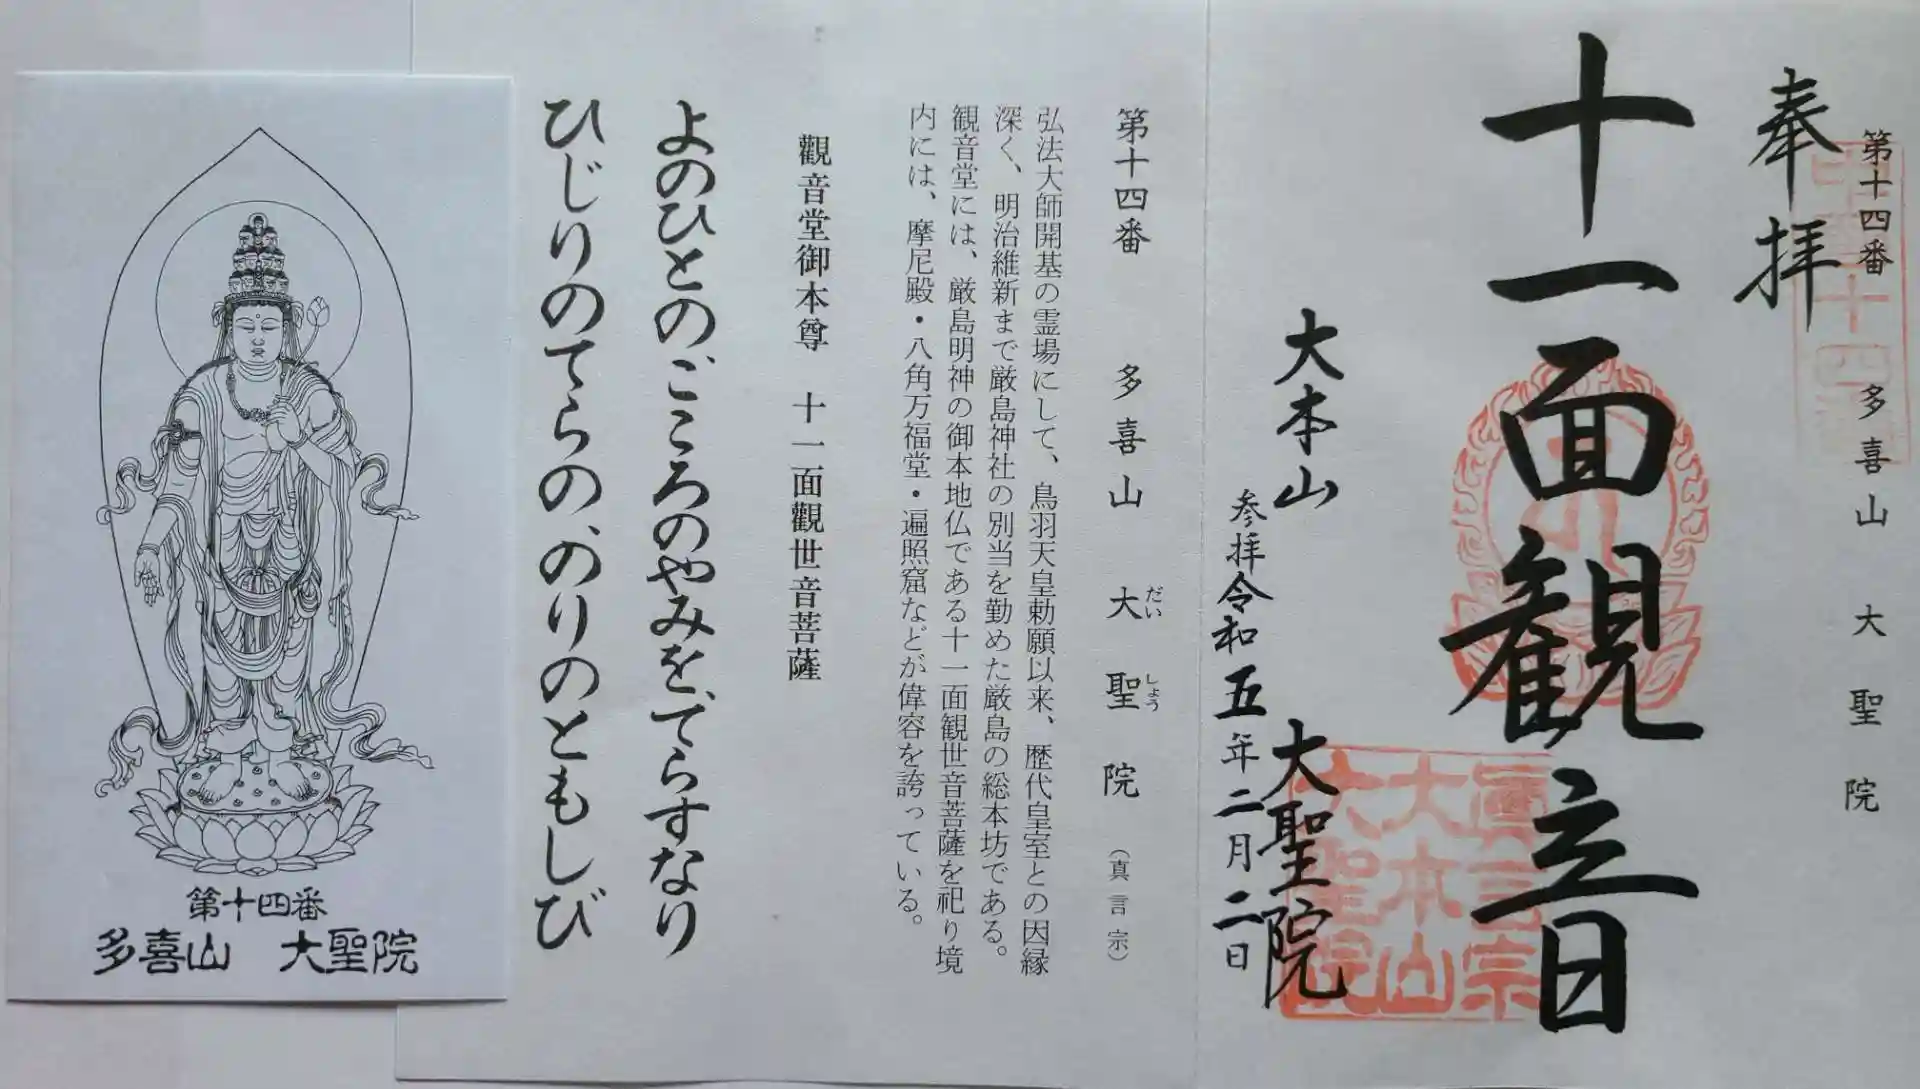 第十四番 多喜山 大聖院
中国十四番
奉拝
十一面観音
大本山 大聖院
真言宗
大本山
大聖院
参拝令和五年二月二日
第十四番 多喜山 大聖院 (真言宗)
だい しょう
弘法大師開基の霊場にして、鳥羽天皇勅願以来、歴代皇室との因縁
深く、明治維新まで厳島神社の別当を勤めた厳島の総本坊である。
観音堂には、厳島明神の御本地仏である十一面観世音菩薩を祀り境
内には、摩尼殿・八角万福堂・遍照窟などが偉容を誇っている。
觀音堂御本尊 十一面觀世音菩薩
よのひとのごころのやみを、てらすなり
ひじりのてらの、のりのともしび
第十四番
多喜山 大聖院